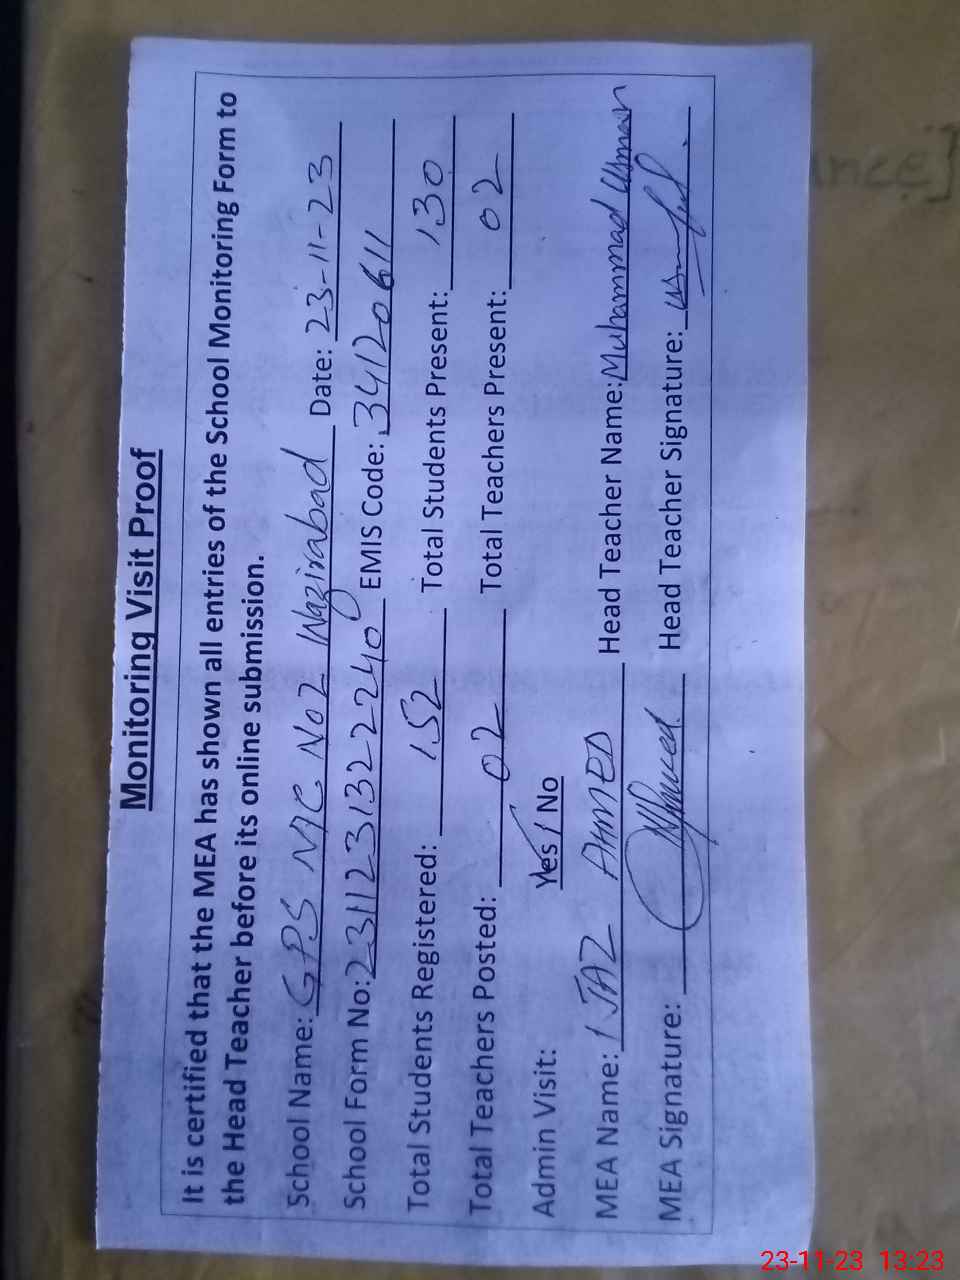 Monitoring Visit Proof
It is certified that the MEA has shown all entries of the School Monitoring Form to
the Head Teacher before its online submission.
School Name: GPS MC No2 Wazirabad Date: 23-11-23
School Form No: 231123132 22240 EMIS Code: 34120611
Total Students Registered: 152 Total Students Present: 130
Total Teachers Posted: 02 Total Teachers Present: 02
Admin Visit: Yes / No
MEA Name: IJAZ AHMED Head Teacher Name: Muhammad Usman
MEA Signature: Ahmed Head Teacher Signature:
ance]
23-11-23 13:23